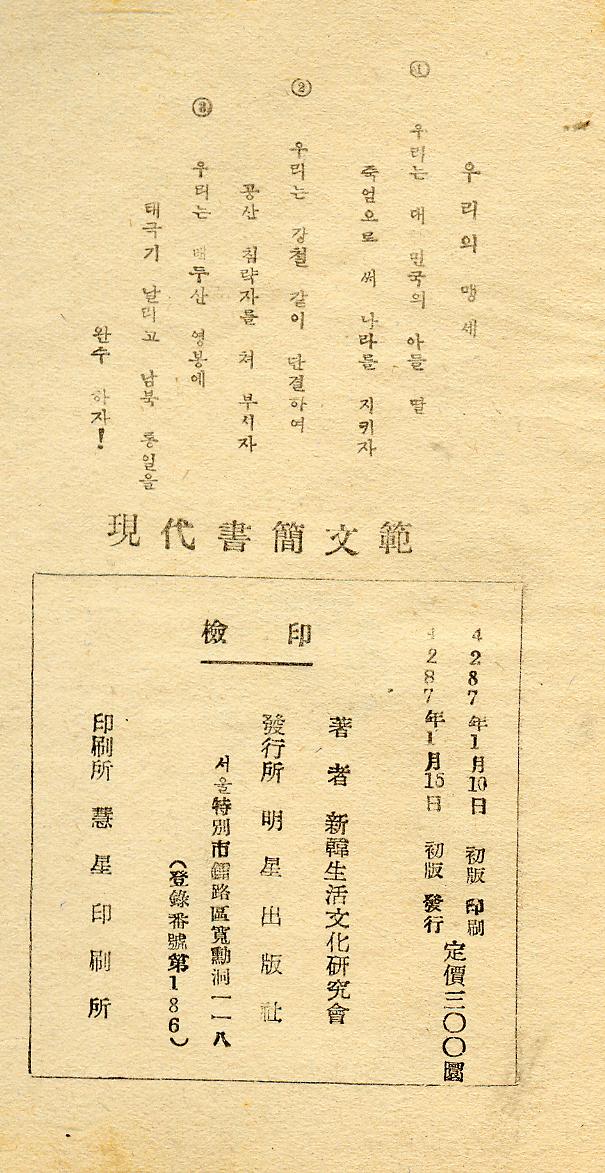 우리의 맹세
① 우리는 대한민국의 아들 딸
죽엄으로 써 나라를 지키자
② 우리는 강철 같이 단결하여
공산 침략자를 쳐 부시자
③ 우리는 백두산 영봉에
태극기 날리고 남북 통일을
완수 하자!
現代書簡文範
檢印
4287年1月10日 初版 印刷
4287年1月15日 初版 發行
定價三〇〇圜
著者 新韓生活文化硏究會
發行所 明星出版社
서울特別市鍾路區寬勳洞一一八
(登錄番號第186)
印刷所 慧星印刷所